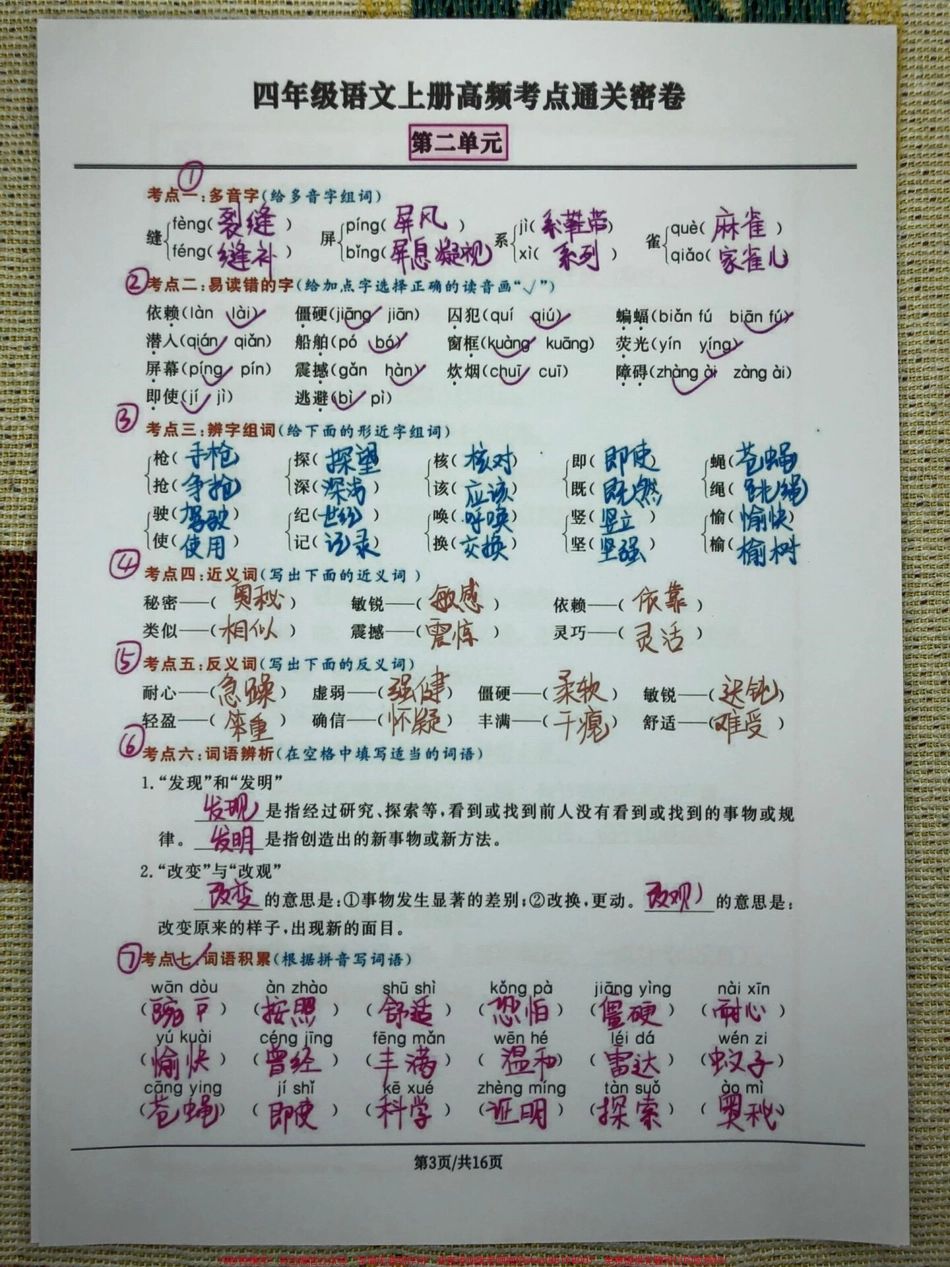 四年级语文上册高频考点通关密卷
第二单元
① 考点一:多音字(给多音字组词)
缝{fèng(裂缝) 屏{píng(屏风) 系{jì(系鞋带) 雀{què(麻雀)
féng(缝补) bǐng(屏息凝视) xì(系列) qiǎo(家雀儿)
② 考点二:易读错的字(给加点字选择正确的读音画“√”)
依赖(làn lài√) 僵硬(jiāng√ jiān) 囚犯(quí qiú√) 蝙蝠(biǎn fú biān fú√)
潜人(qián√ qiǎn) 船舶(pó bó√) 窗框(kuàng√ kuāng) 荧光(yín yíng√)
屏幕(píng√ pín) 震撼(gǎn hàn√) 炊烟(chuī√ cuī) 障碍(zhàng ài√ zàng ài)
即使(jí√ jì) 逃避(bì√ pì)
③ 考点三:辨字组词(给下面的形近字组词)
枪(手枪) 探(探望) 核(核对) 即(即使) 蝇(苍蝇)
抢(争抢) 深(深海) 该(应该) 既(既然) 绳(跳绳)
驶(驾驶) 纪(世纪) 唤(呼唤) 竖(竖立) 愉(愉快)
使(使用) 记(记录) 换(交换) 坚(坚强) 榆(榆树)
④ 考点四:近义词(写出下面的近义词)
秘密——(奥秘) 敏锐——(敏感) 依赖——(依靠)
类似——(相似) 震撼——(震惊) 灵巧——(灵活)
⑤ 考点五:反义词(写出下面的反义词)
耐心——(急躁) 虚弱——(强健) 僵硬——(柔软) 敏锐——(迟钝)
轻盈——(笨重) 确信——(怀疑) 丰满——(干瘪) 舒适——(难受)
⑥ 考点六:词语辨析(在空格中填写适当的词语)
1.“发现”和“发明”
发现是指经过研究、探索等,看到或找到前人没有看到或找到的事物或规
律。发明是指创造出的新事物或新方法。
2.“改变”与“改观”
改变的意思是:①事物发生显著的差别;②改换,更动。改观的意思是:
改变原来的样子,出现新的面目。
⑦ 考点七:词语积累(根据拼音写词语)
wān dòu àn zhào shū shì kǒng pà jiāng yìng nài xīn
(豌豆) (按照) (舒适) (恐怕) (僵硬) (耐心)
yú kuài céng jīng fēng mǎn wēn hé léi dá wén zi
(愉快) (曾经) (丰满) (温和) (雷达) (蚊子)
cāng ying jí shǐ kē xué zhèng míng tàn suǒ ào mì
(苍蝇) (即使) (科学) (证明) (探索) (奥秘)
第3页/共16页